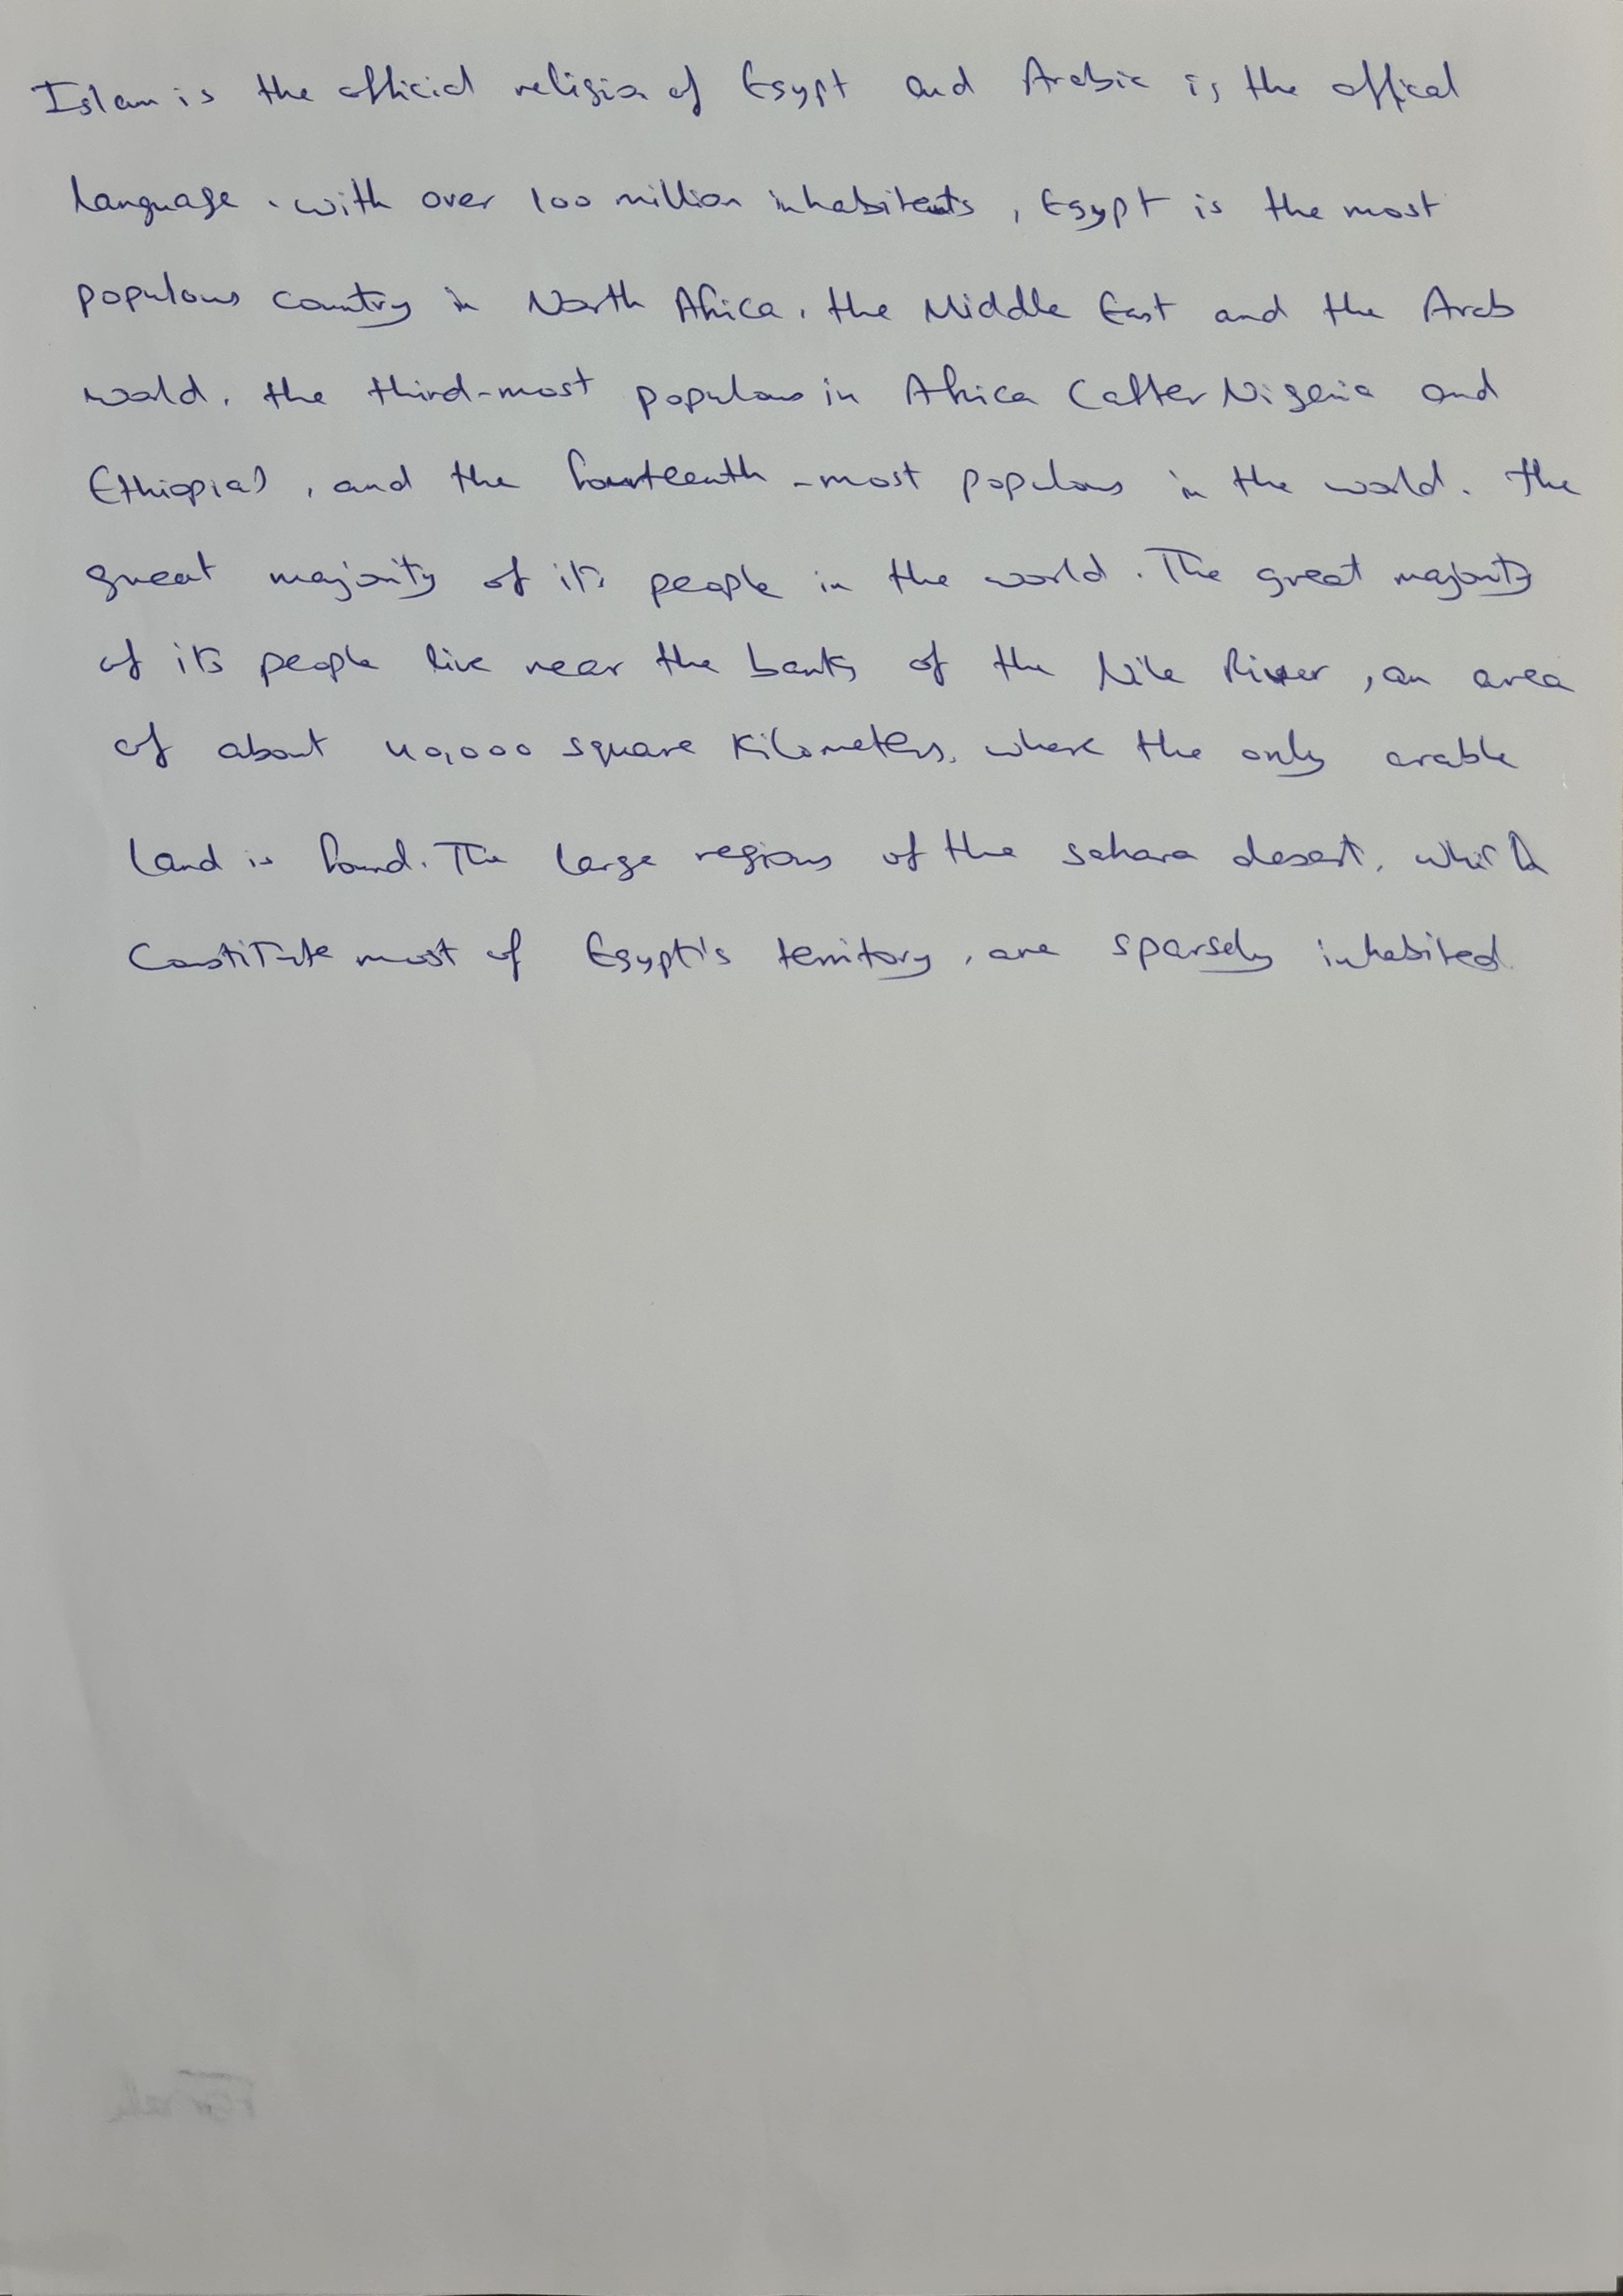 Islam is the official religion of Egypt and Arabic is the offical
language. with over 100 million inhabitants, Egypt is the most
populous country in North Africa, the Middle East and the Arab
world, the third-most populous in Africa (after Nigeria and
Ethiopia), and the fourteenth-most populous in the world. the
great majority of its people in the world. The great majority
of its people live near the banks of the Nile River, an area
of about 40,000 square Kilometers, where the only arable
land is found. The large regions of the sahara desert, which
Constitute most of Egypt's territory, are sparsely inhabited.